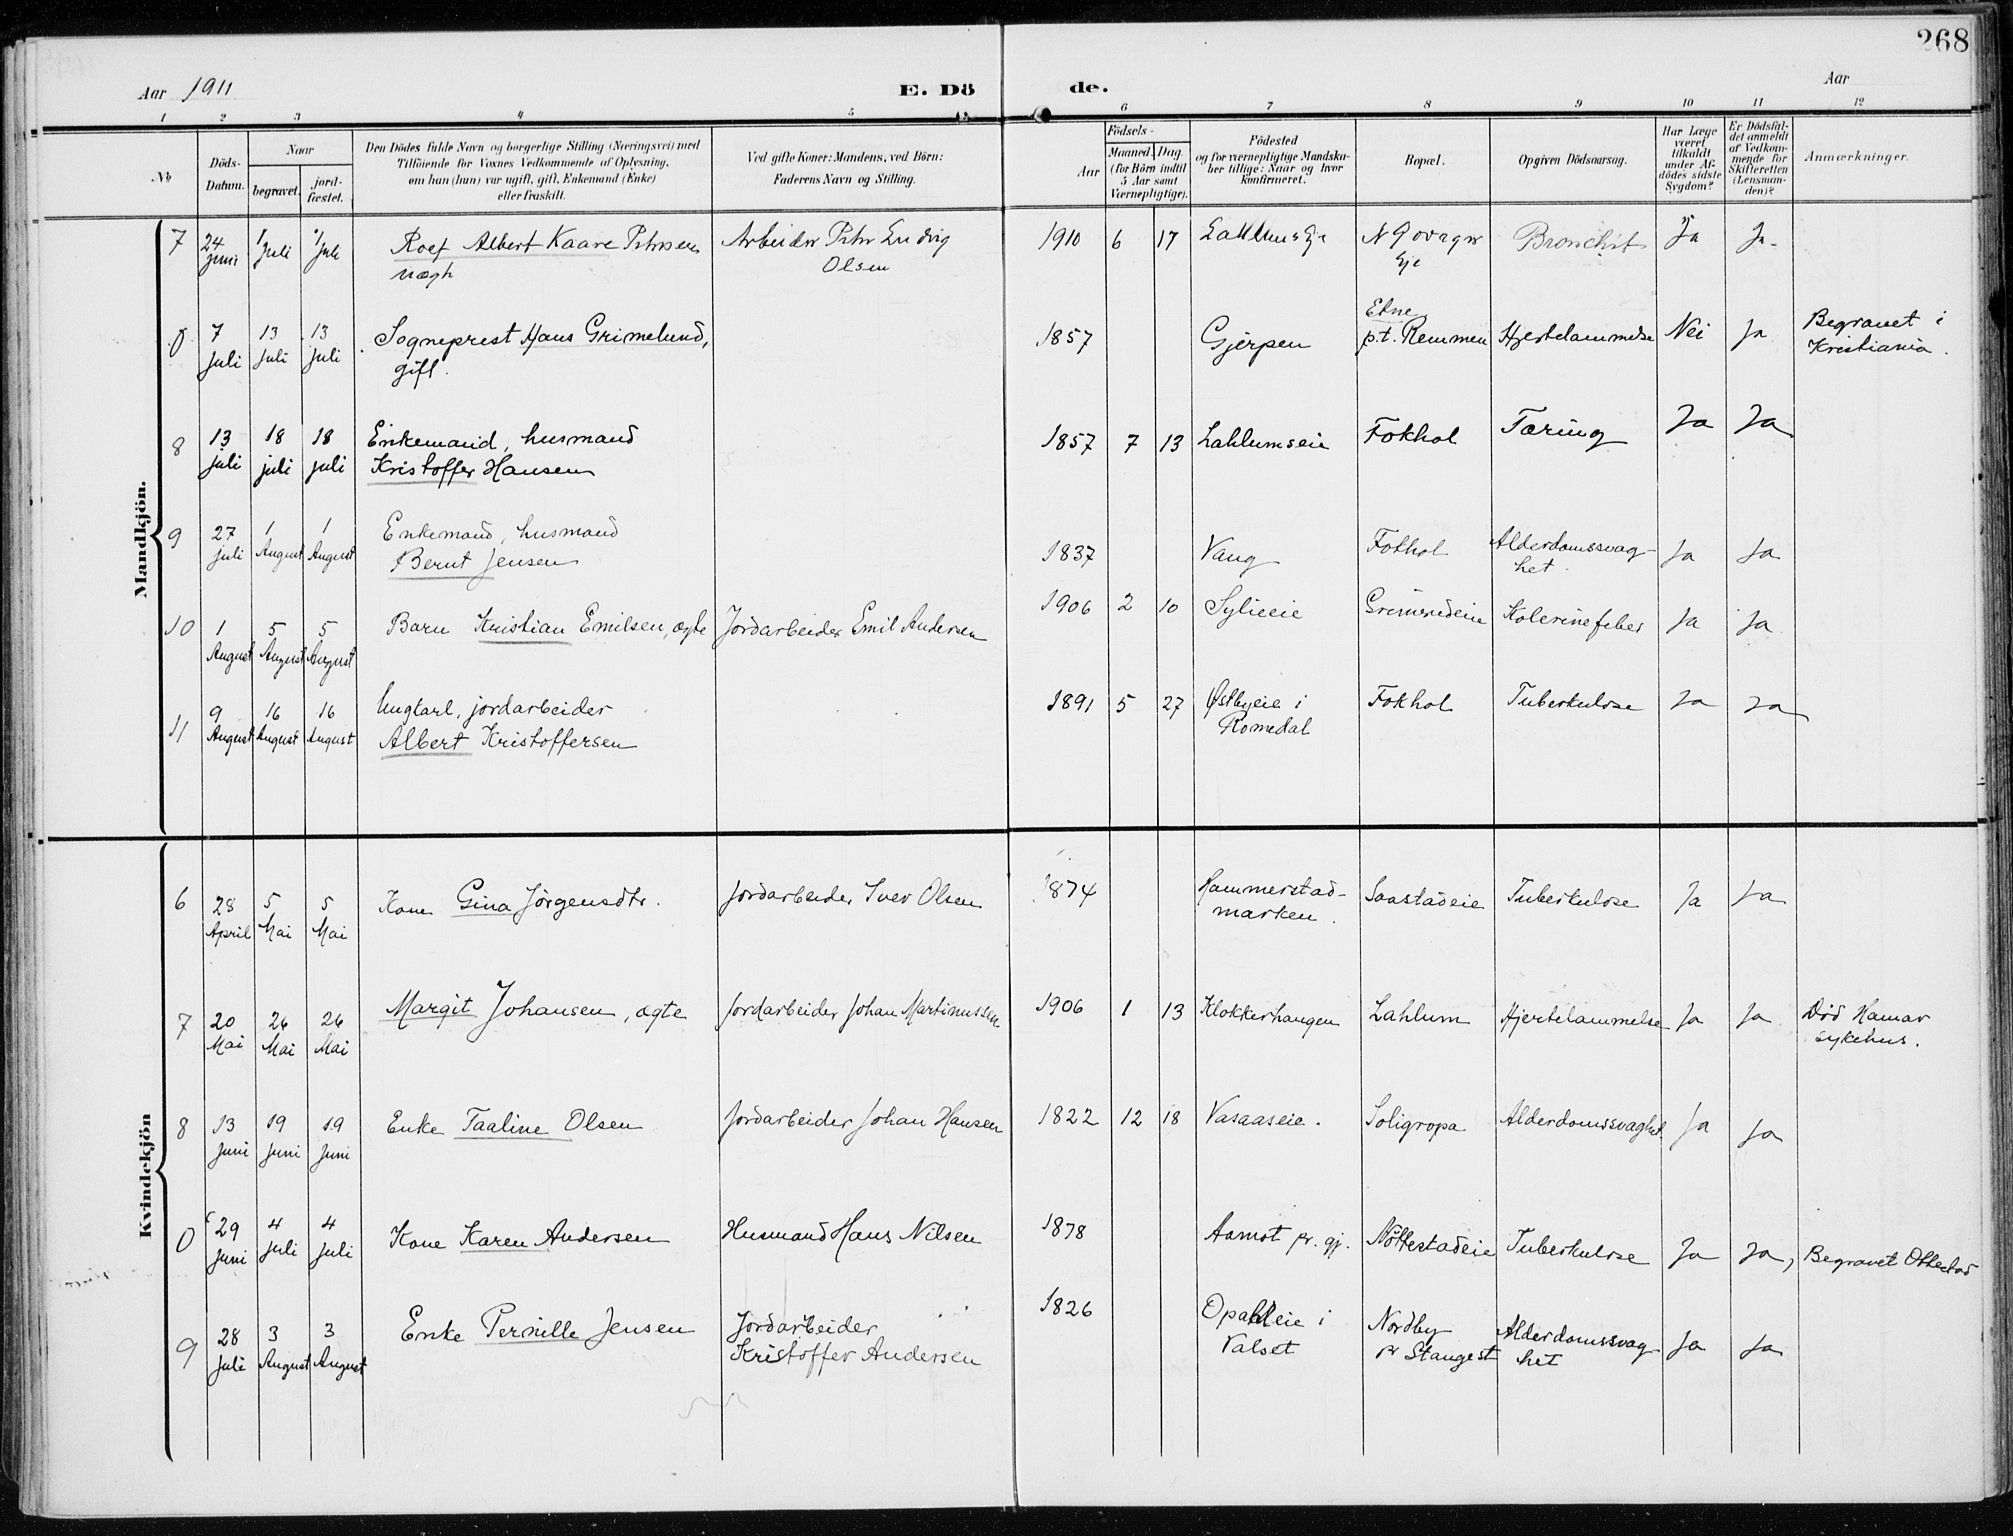 268
Aar 1911 E. Dö de. Aar
1 2 3 4 5 6 7 8 9 10 11 12
No
Döds-
Datum.
Naar
begravet.
jord-
fæstet.
Den Dödes fulde Navn og borgerlige Stilling (Næringsvei) med
Tilföiende for Voxnes Vedkommende af Oplysning,
om han (hun) var ugift, gift, Enkemand (Enke)
eller fraskilt.
Ved gifte Koner: Mandens, ved Börn:
Faderens Navn og Stilling.
Födsels-
Aar
Maaned. Dag.
(for Börn indtil
5 Aar samt
Værnepligtige).
Födested
og for værnepligtige Mandska-
ber tillige: Naar og hvor
konfirmeret.
Bopæl.
Opgiven Dödsaarsag.
Har Læge
været
tilkaldt
under Af-
dödes sidste
Sygdom?
Er Dödsfal-
det anmeldt
af Vedkom-
mende for
Skifteretten
(Lensman-
den)?
Anmærkninger.
Mandkjön.
7 24 Juni 1 Juli 1 Juli Rolf Albert Kaare Petersen Arbeider Peter Ludvig 1910 6 17 Bronchit Ja Ja
uægte Olsen Eje
0 7 Juli 13 Juli 13 Juli Sogneprest Hans Grimelund, 1857 Gjerpen Etne Hjertelammelse Nei Ja Begravet i
gift. p.t. Remmen Kristiania.
8 13 juli 18 juli 18 juli Enkemand, husmand 1857 7 13 Lahlumseie Fokhol Tæring Ja Ja
Kristoffer Hansen
9 27 juli 1 August 1 August Enkemand, husmand 1837 Vang Fokhol Alderdomssvag- Ja Ja
Bernt Jensen het.
10 1 August 5 August 5 August Barn Kristian Emilsen, ægte Jordarbeider Emil Andersen 1906 2 10 Kolerinefeber Ja Ja
11 9 August 16 August 16 August Ungkarl, jordarbeider 1891 5 27 Østbyeie i Fokhol Tuberkulose Ja Ja
Albert Kristoffersen Romedal
Kvindekjön
6 28 April 5 Mai 5 Mai Kone Gina Jörgensdtr. Jordarbeider Iver Olsen 1874 Hammerstad- Saastadeie Tuberkulose Ja Ja
marken.
7 20 Mai 26 Mai 26 Mai Margit Johansen, ægte Jordarbeider Johan Martinussen 1906 1 13 Klokkerhaugen Lahlum Hjertelammelse Ja Ja Død Hamar
sykehus.
8 13 Juni 19 Juni 19 Juni Enke Taaline Olsen Jordarbeider Johan Hansen 1822 12 18 Vasaaseie. Soligropa Alderdomssvaghet Ja Ja
0 29 Juni 4 Juli 4 Juli Kone Karen Andersen Husmand Hans Nilsen 1878 Aamot pr. gj. Nöttestadeie Tuberkulose Ja Ja, Begravet Ottestad
9 28 Juli 3 August 3 August Enke Pernille Jensen Jordarbeider 1826 Opakleie i Nordby Alderdomssvag- Ja Ja
Kristoffer Andersen Valset pr Stangest het